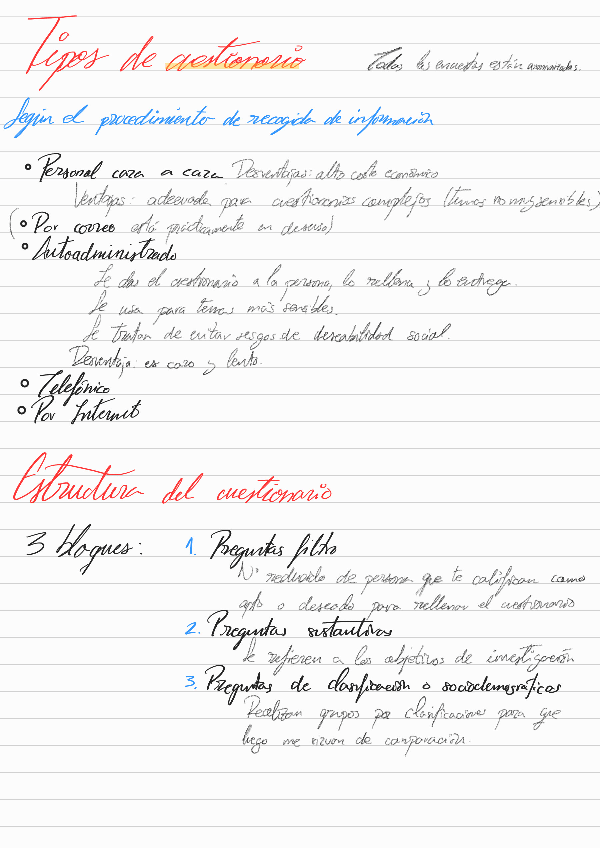 Tipos de cuestionario
Todas las encuestas están aumentadas.
Según el procedimiento de recogida de información
Personal cara a cara Desventajas: alto coste económico
Ventajas: adecuada para cuestionarios complejos (temas no muy sensibles)
(Por correo está prácticamente en desuso)
Autoadministrado
Le das el cuestionario a la persona, lo rellena y lo entrega.
Se usa para temas más sensibles.
Se tratan de evitar sesgos de deseabilidad social.
Desventaja: es caro y lento.
Telefónico
Por Internet
Estructura del cuestionario
3 bloques:
1. Preguntas filtro
Nº reducido de persona que te califican como
apto o deseado para rellenar el cuestionario
2. Preguntas sustantivas
Se refieren a los objetivos de investigación
3. Preguntas de clasificación o sociodemográficas
Realizan grupos por clasificaciones para que
luego me sirvan de comparación.